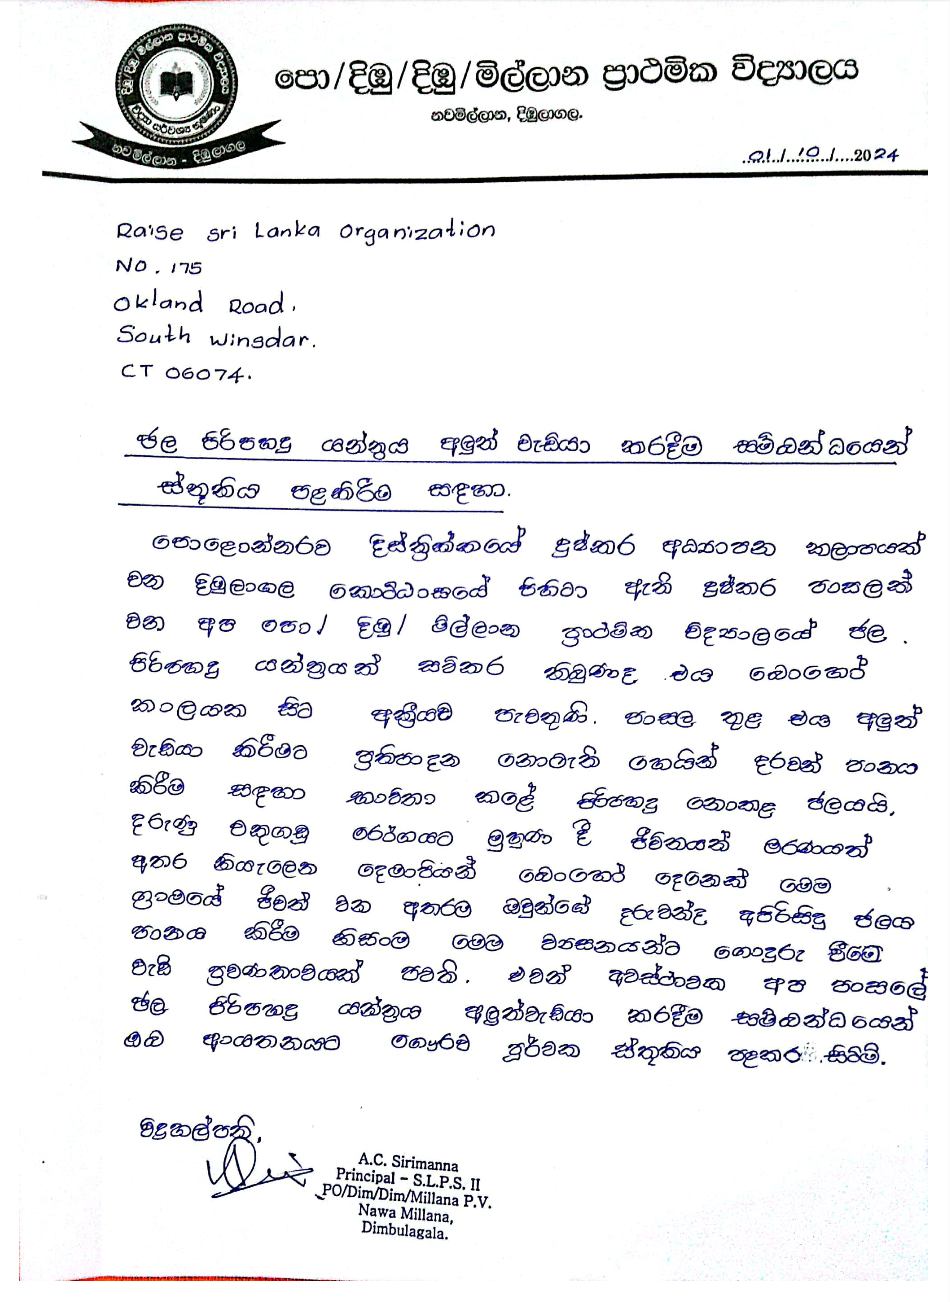 දිඹු/දිඹු/ මිල්ලාන ප්‍රාථමික විද්‍යාලය
නවමිල්ලාන - දිඹුලාගල
පො/දිඹු/දිඹු/මිල්ලාන ප්‍රාථමික විද්‍යාලය
නවමිල්ලාන, දිඹුලාගල.
..01../...10.../....2024
Raise sri Lanka organization
NO. 175
Okland Road.
South Winsdar.
CT 06074.
ජල පිරිපහදු යන්ත්‍රය අලුත් වැඩියා කරදීම සම්බන්ධයෙන්
ස්තූතිය පළකිරීම සඳහා.
පොළොන්නරුව දිස්ත්‍රික්කයේ දුෂ්කර අධ්‍යාපන කලාපයක්
වන දිඹුලාගල කොට්ඨාසයේ පිහිටා ඇති දුෂ්කර පාසලක්
වන අප පො/ දිඹු/ මිල්ලාන ප්‍රාථමික විද්‍යාලයේ ජල
පිරිපහදු යන්ත්‍රයක් සවිකර තිබුණද එය බොහෝ
කාලයක සිට අක්‍රීයව පැවතුණි. පාසල තුළ එය අලුත්
වැඩියා කිරීමට ප්‍රතිපාදන නොමැති හෙයින් දරුවන් පානය
කිරීම සඳහා භාවිතා කළේ පිරිපහදු නොකළ ජලයයි.
දරුණු වකුගඩු රෝගයට මුහුණ දී ජීවිතයත් මරණයත්
අතර නියැලෙන දෙමාපියන් බොහෝ දෙනෙක් මෙම
ග්‍රාමයේ ජීවත් වන අතරම ඔවුන්ගේ දරුවන්ද අපිරිසිදු ජලය
පානය කිරීම නිසාම මෙම ව්‍යසනයන්ට ගොදුරු වීමේ
වැඩි ප්‍රවණතාවයක් පවතී. එවන් අවස්ථාවක අප පාසලේ
ජල පිරිපහදු යන්ත්‍රය අලුත්වැඩියා කරදීම සම්බන්ධයෙන්
ඔබ ආයතනයට ගෞරව පූර්වක ස්තූතිය පළකර සිටිමි.
විදුහල්පති,
A.C. Sirimanna
Principal - S.L.P.S. II
PO/Dim/Dim/Millana P.V.
Nawa Millana,
Dimbulagala.